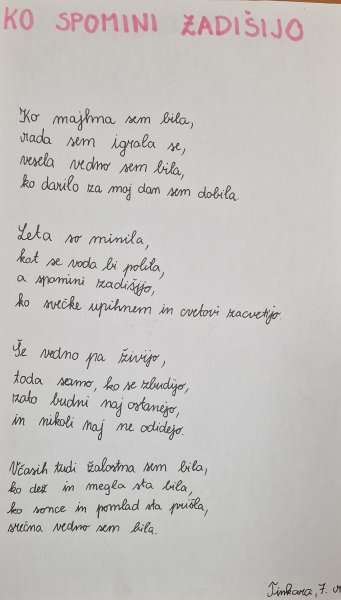 KO SPOMINI ZADIŠIJO
Ko majhna sem bila,
rada sem igrala se,
vesela vedno sem bila,
ko darilo za moj dan sem dobila.
Leta so minila,
kot se voda bi polila,
a spomini zadišijo,
ko svečke upihnem in cvetovi zacvetijo.
Še vedno pa živijo,
toda samo, ko se zbudijo,
zato budni naj ostanejo,
in nikoli naj ne odidejo.
Včasih tudi žalostna sem bila,
ko dež in megla sta bila,
ko sonce in pomlad sta prišla,
srečna vedno sem bila.
Tinkara, 7.